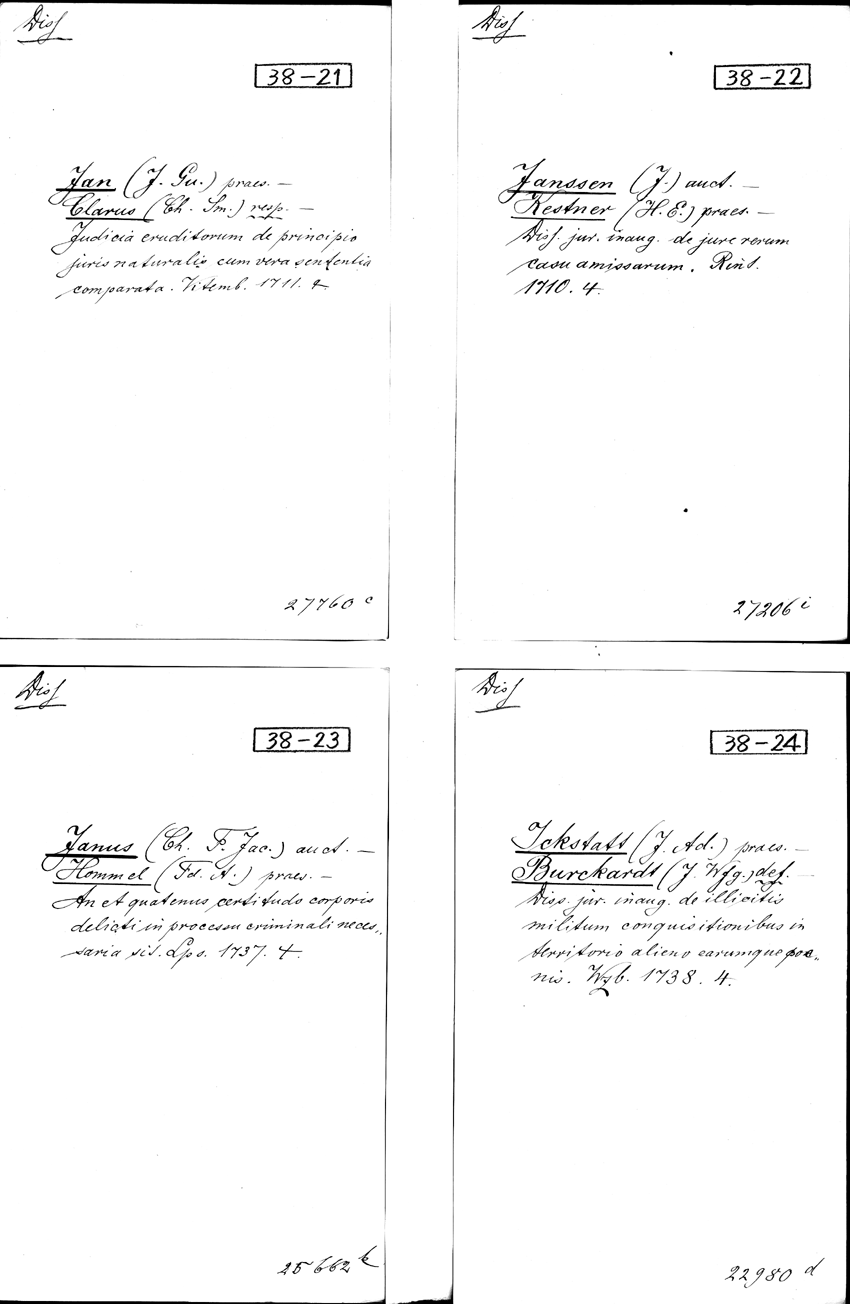 Diss
38-21
Jan (J. Gu.) praes. —
Clarus (Ch. Sm.) resp. —
Judicia eruditorum de principio
juris naturalis cum vera sententia
comparata. Vitemb. 1711. 4.
27760 c
Diss
38-22
Janssen (J.) auct. —
Kestner (H. E.) praes. —
Diss. jur. inaug. de jure rerum
casu amissarum. Rint.
1710. 4.
27206 i
Diss
38-23
Janus (Ch. F. Jac.) auct. —
Hommel (Fd. A.) praes. —
An et quatenus certitudo corporis
delicti in processu criminali neces„
saria sit. Lps. 1737. 4.
25662 k
Diss
38-24
Ickstatt (J. Ad.) praes. —
Burckardt (J. Wfg.) def. —
Diss. jur. inaug. de illicitis
militum conquisitionibus in
territorio alieno earumque poe„
nis. Wzb. 1738. 4.
22980 d